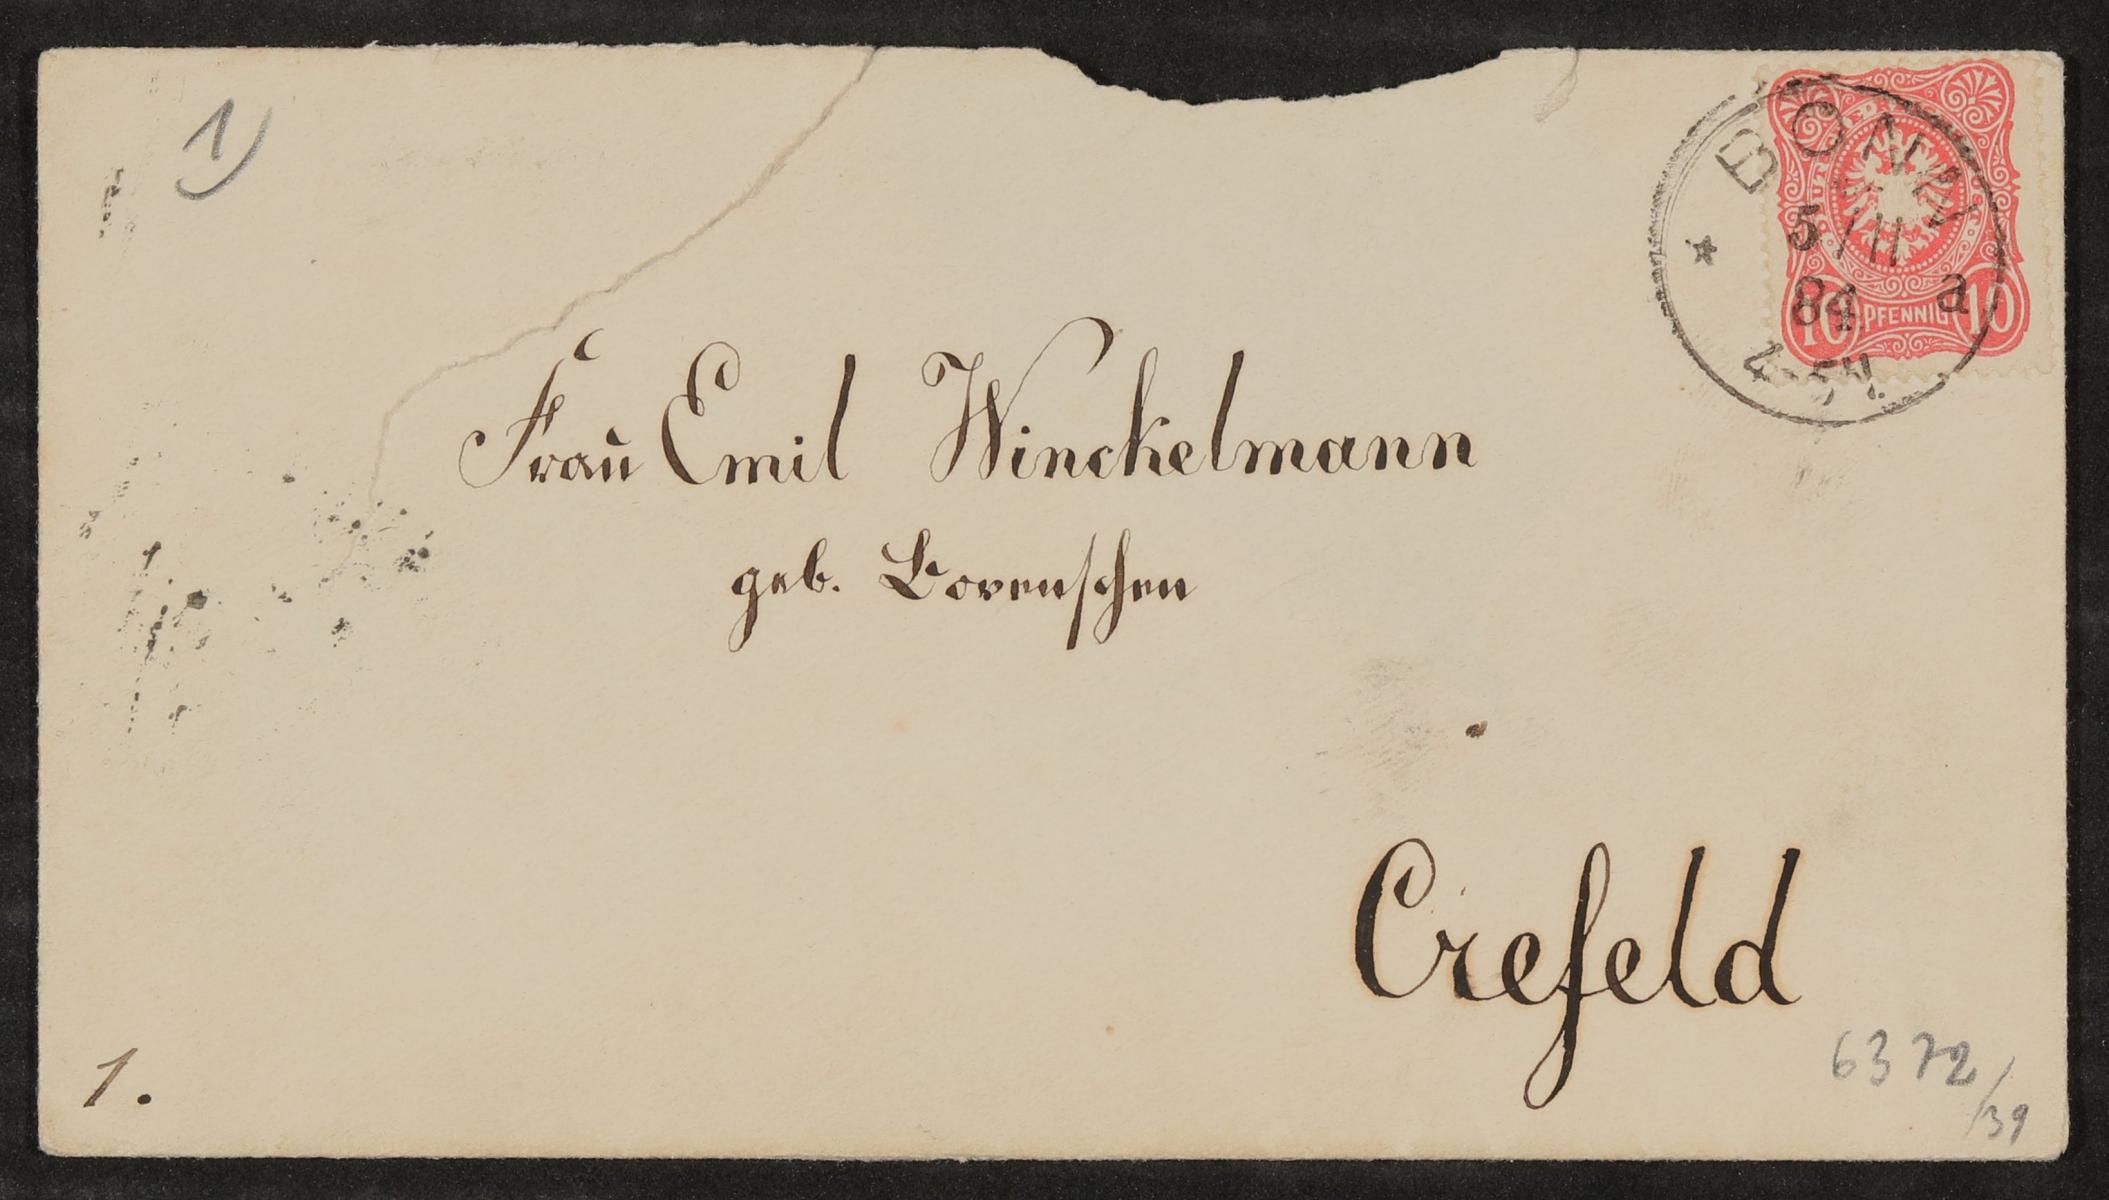 1)
BONN
5/11
84
a
4-5N.
10 PFENNIG 10
Frau Emil Winckelmann
geb. Lovenschen
Crefeld
1.
6372/39